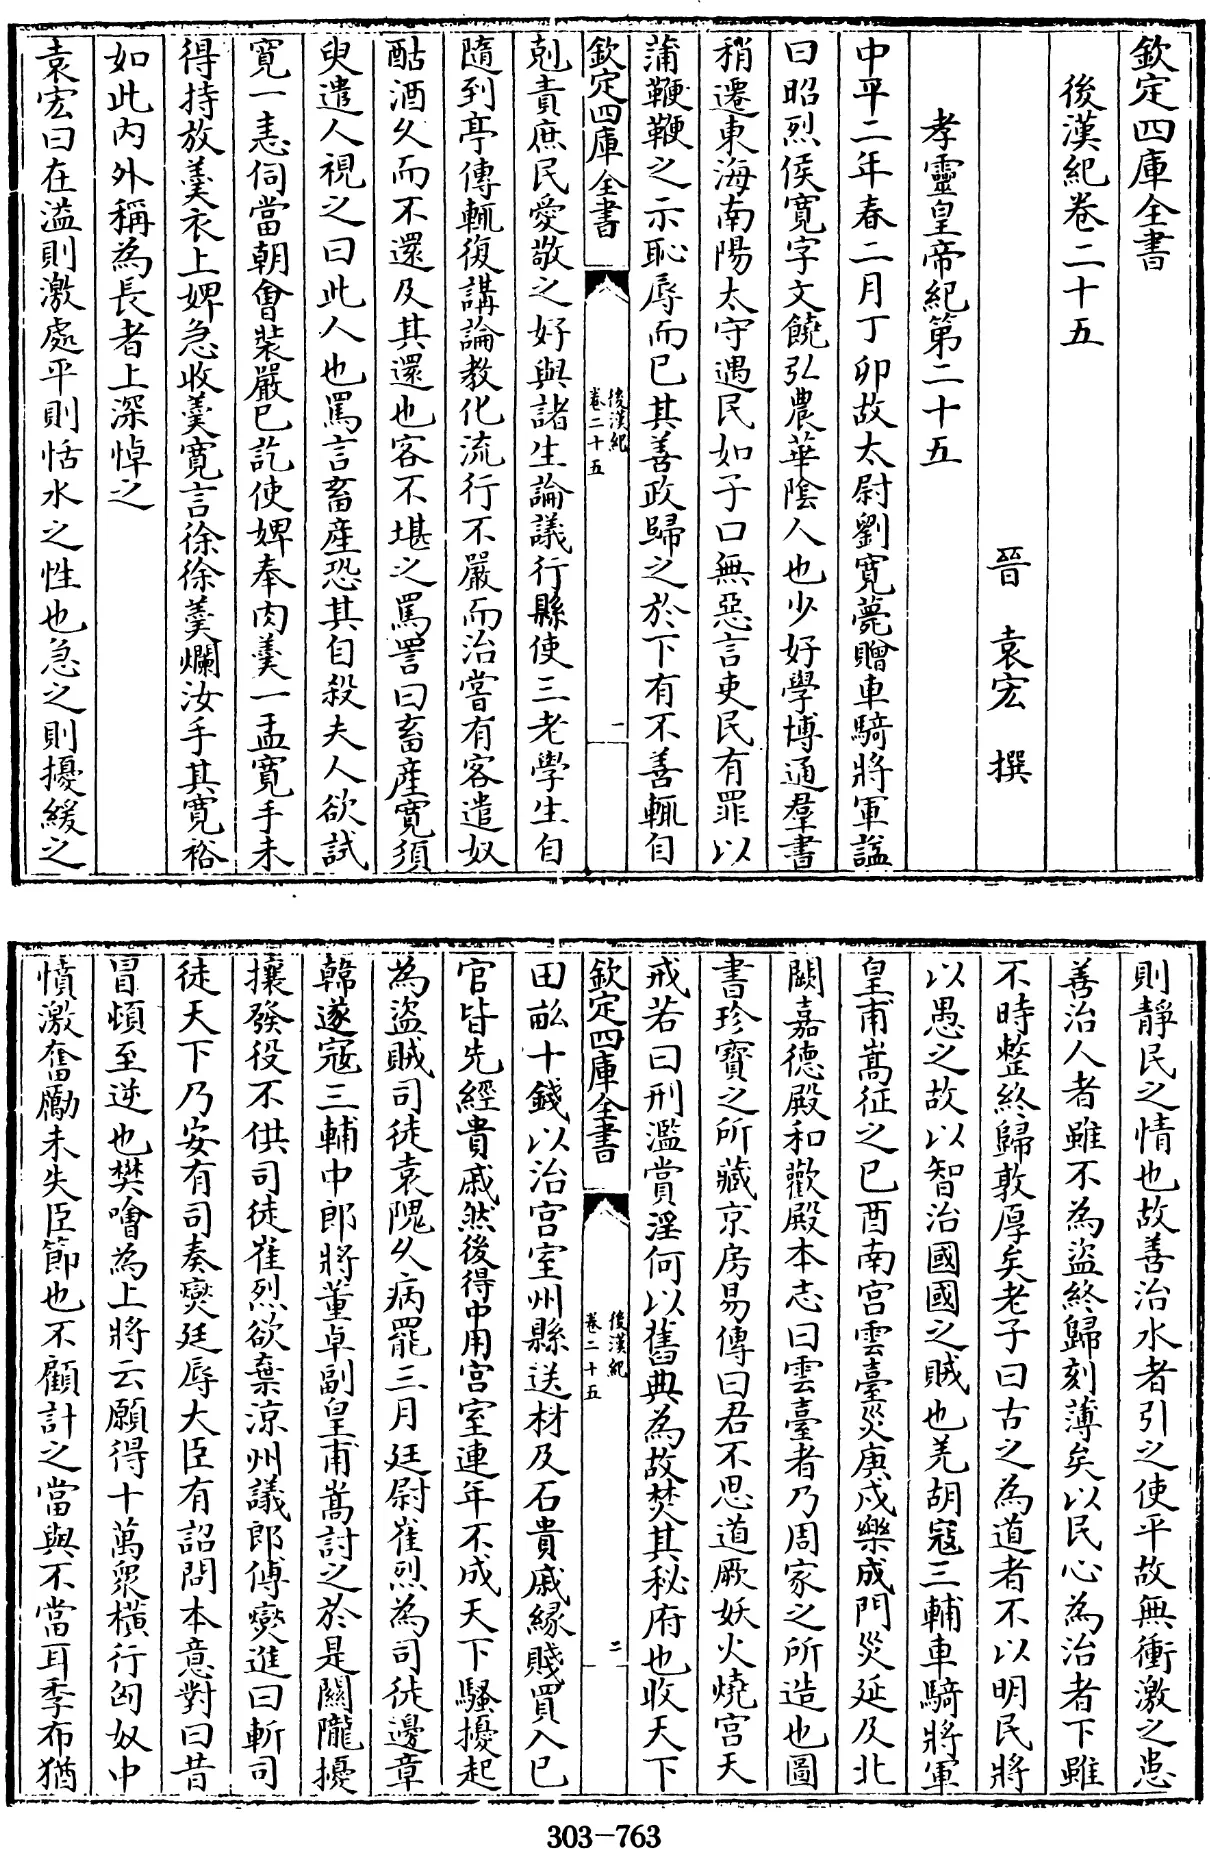 欽定四庫全書
後漢紀卷二十五
晉　袁宏　撰
孝靈皇帝紀第二十五
中平二年春二月丁卯故太尉劉寬薨贈車騎將軍諡
曰昭烈侯寬字文饒弘農華陰人也少好學博通羣書
稍遷東海南陽太守遇民如子口無惡言吏民有罪以
蒲鞭鞭之示恥辱而已其善政歸之於下有不善輒自
欽定四庫全書
後漢紀
卷二十五
一
剋責庶民愛敬之好與諸生論議行縣使三老學生自
隨到亭傳輒復講論教化流行不嚴而治嘗有客遣奴
酤酒久而不還及其還也客不堪之罵詈曰畜產寬須
臾遣人視之曰此人也罵言畜產恐其自殺夫人欲試
寛一恚伺當朝會裝嚴已訖使婢奉肉羹一盂寛手未
得持放羹衣上婢急收羹寛言徐徐羹爛汝手其寛裕
如此内外稱為長者上深悼之
袁宏曰在溢則激處平則恬水之性也急之則擾緩之
則靜民之情也故善治水者引之使平故無衝激之患
善治人者雖不為盜終歸刻薄矣以民心為治者下雖
不時整終歸敦厚矣老子曰古之為道者不以明民將
以愚之故以智治國國之賊也羌胡寇三輔車騎將軍
皇甫嵩征之已酉南宫雲臺災庚戍樂成門災延及北
闕嘉德殿和歡殿本志曰雲臺者乃周家之所造也圖
書珍寶之所藏京房易傳曰君不思道厥妖火燒宫天
戒若曰刑濫賞淫何以舊典為故焚其秘府也收天下
欽定四庫全書
後漢紀
卷二十五
二
田畝十錢以治宫室州縣送材及石貴戚緣賤買入已
官皆先經貴戚然後得中用宫室連年不成天下騷擾起
為盜賊司徒袁隗久病罷三月廷尉崔烈為司徒邊章
韓遂寇三輔中郎將董卓副皇甫嵩討之於是關隴擾
攘發役不供司徒崔烈欲棄涼州議郎傅燮進曰斬司
徒天下乃安有司奏燮廷辱大臣有詔問本意對曰昔
冒頓至逆也樊噲為上將云願得十萬衆橫行匈奴中
憤激奮勵未失臣節也不顧計之當與不當耳季布猶
303-763